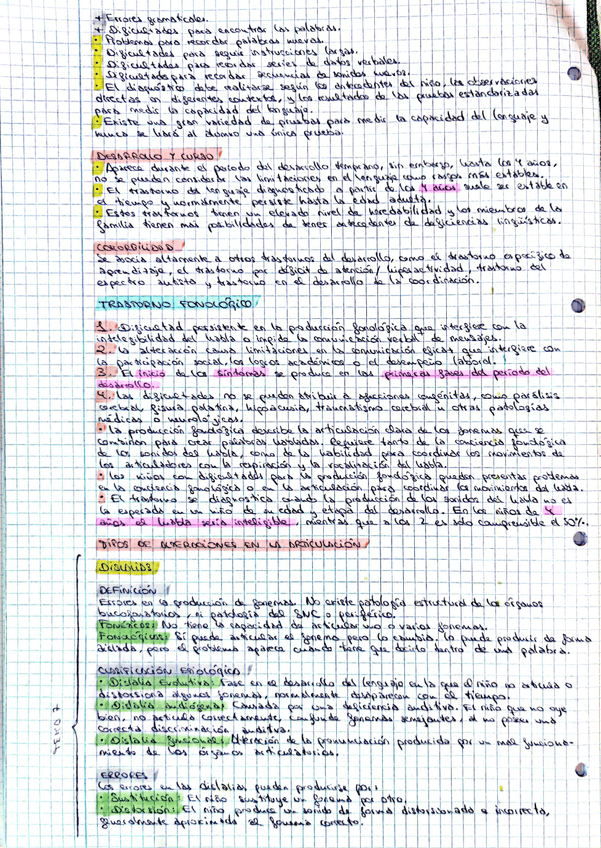 + Errores gramaticales.
+ Dificultades para encontrar las palabras.
• Problemas para recordar palabras nuevas.
• Dificultades para seguir instrucciones largas.
• Dificultades para recordar series de datos verbales.
• Dificultades para recordar secuencias de sonidos nuevos.
• El diagnóstico debe realizarse según los antecedentes del niño, las observaciones
directas en diferentes contextos, y los resultados de las pruebas estandarizadas
para medir la capacidad del lenguaje.
• Existe una gran variedad de pruebas para medir la capacidad del lenguaje y
nunca se hará al alumno una única prueba.
DESARROLLO Y CURSO
• Aparece durante el periodo del desarrollo temprano, sin embargo, hasta los 4 años,
no se pueden considerar las limitaciones en el lenguaje como rasgos más estables.
• El trastorno del lenguaje diagnosticado a partir de los 4 años suele ser estable en
el tiempo y normalmente persiste hasta la edad adulta.
• Estos trastornos tienen un elevado nivel de heredabilidad y los miembros de la
familia tienen más posibilidades de tener antecedentes de deficiencias lingüísticas.
COMORBILIDAD
Se asocia altamente a otros trastornos del desarrollo, como el trastorno específico de
aprendizaje, el trastorno por déficit de atención/hiperactividad, trastorno del
espectro autista y trastorno en el desarrollo de la coordinación.
TRASTORNO FONOLÓGICO
1. Dificultad persistente en la producción fonológica que interfiere con la
inteligibilidad del habla o impide la comunicación verbal de mensajes.
2. La alteración causa limitaciones en la comunicación eficaz que interfiere con
la participación social, los logros académicos o el desempeño laboral.
3. El inicio de los síntomas se produce en las primeras fases del periodo del
desarrollo.
4. Las dificultades no se pueden atribuir a afecciones congénitas, como parálisis
cerebral, fisura palatina, hipoacusia, traumatismo cerebral u otras patologías
médicas o neurológicas.
• La producción fonológica describe la articulación clara de los fonemas que se
combinan para crear palabras habladas. Requiere tanto de la conciencia fonológica
de los sonidos del habla, como de la habilidad para coordinar los movimientos de
los articuladores con la respiración y la vocalización del habla.
• Los niños con dificultades para la producción fonológica pueden presentar problemas
en la conciencia fonológica o en la articulación para coordinar los movimientos del habla.
• El trastorno se diagnostica cuando la producción de los sonidos del habla no es
la esperada en un niño de su edad y etapa del desarrollo. En los niños de 4
años el habla sería inteligible, mientras que a los 2 es solo comprensible el 50%.
TIPOS DE ALTERACIONES EN LA ARTICULACIÓN
DISLALIAS
DEFINICIÓN
Errores en la producción de fonemas. No existe patología estructural de los órganos
bucofonatorios, ni patología del SNC o periférico.
Fonéticos: No tiene la capacidad de articular uno o varios fonemas.
Fonológicos: Sí puede articular el fonema pero lo cambia. Lo puede producir de forma
aislada, pero el problema aparece cuando tiene que decirlo dentro de una palabra.
CLASIFICACIÓN ETIOLÓGICA
• Dislalia Evolutiva: Fase en el desarrollo del lenguaje en la que el niño no articula o
distorsiona algunos fonemas, normalmente desaparecen con el tiempo.
• Dislalia audiógena: Causada por una deficiencia auditiva. El niño que no oye
bien, no articula correctamente, confunde fonemas semejantes, al no poseer una
correcta discriminación auditiva.
• Dislalia funcional: Alteración de la pronunciación producida por un mal funciona-
miento de los órganos articulatorios.
ERRORES
Los errores en las dislalias pueden producirse por:
• Sustitución: El niño sustituye un fonema por otro.
• Distorsión: El niño produce un sonido de forma distorsionada o incorrecta,
generalmente aproximada al fonema correcto.
TEMA 7